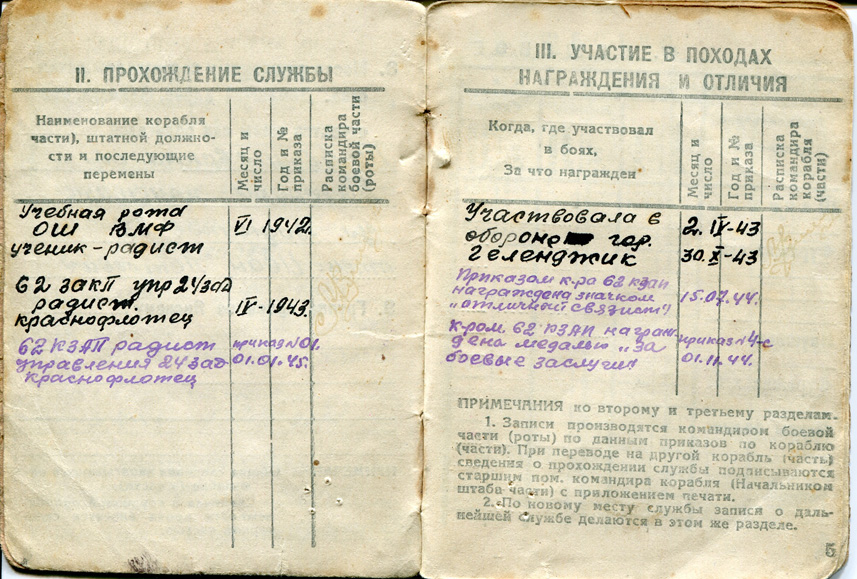 II. ПРОХОЖДЕНИЕ СЛУЖБЫ
Наименование корабля
части), штатной должно-
сти и последующие
перемены
Месяц и
число
Год и №
приказа
Расписка
командира
боевой части
(роты)
Учебная рота
ОШ ВМФ
ученик-радист
VI
1942.
62 закП упр 24 зад
радист.
краснофлотец
IV-
1943.
62 КЗАП радист
управления 24 зад
краснофлотец
приказ №01.
01.01.45.
III. УЧАСТИЕ В ПОХОДАХ
НАГРАЖДЕНИЯ И ОТЛИЧИЯ
Когда, где участвовал
в боях,
За что награжден
Месяц и
число
Год и №
приказа
Расписка
командира
корабля
(части)
Участвовала в
обороне гор.
Геленджик
2. IV-43
30. X-43
Приказом к-ра 62 кзап
награждена значком
„отличный связист"
15.07.44.
к-ром 62 КЗАП награж-
дена медалью „за
боевые заслуги"
приказ №4-с
01.11.44.
ПРИМЕЧАНИЯ ко второму и третьему разделам.
1. Записи производятся командиром боевой
части (роты) по данным приказов по кораблю
(части). При переводе на другой корабль (часть)
сведения о прохождении службы подписываются
старшим пом. командира корабля (Начальником
штаба части) с приложением печати.
2. По новому месту службы записи о даль-
нейшей службе делаются в этом же разделе.
5